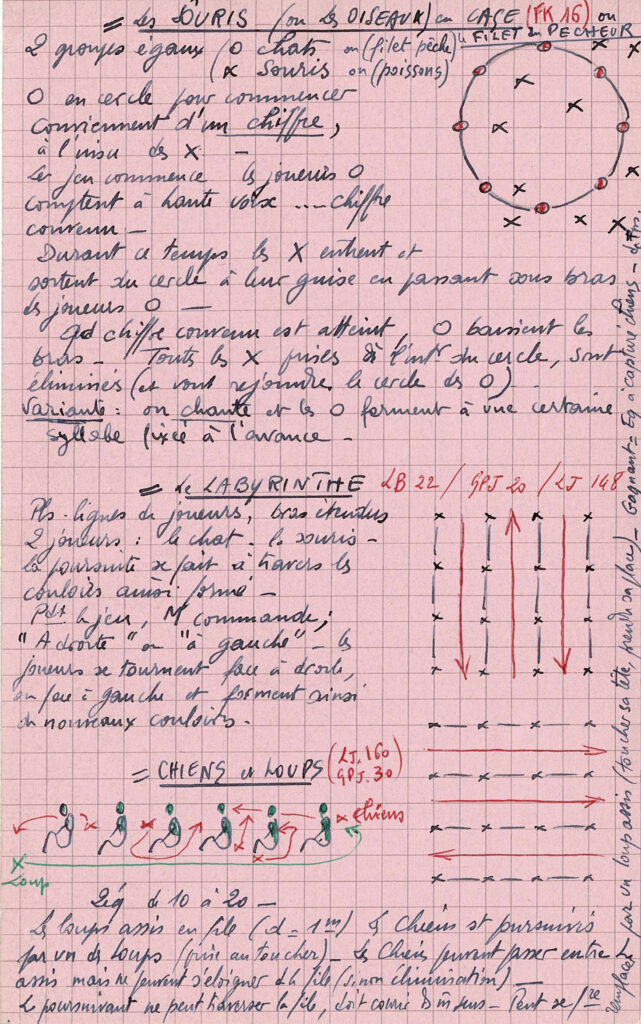 = Les SOURIS (ou les OISEAUX) en CAGE (FK 16) ou
le FILET du PECHEUR
2 groupes égaux (O chats ou (filet pêche)
x souris ou (poissons)
O en cercle pour commencer
conviennent d'un chiffre,
à l'insu des X -
Le jeu commence les joueurs O
comptent à haute voix .... chiffre
convenu -
Durant ce temps les X entrent et
sortent du cercle à leur guise en passant sous bras
des joueurs O -
Qd chiffre convenu est atteint, O baissent les
bras - Touts les X prises à l'intr du cercle, sont
éliminés (et vont rejoindre le cercle des O) -
Variante : on chante et les O ferment à une certaine
syllabe fixée à l'avance -
= Le LABYRINTHE LB 22 / GPJ 20 / LJ 148
Pls. lignes de joueurs, bras étendus
2 joueurs : le chat - la souris -
la poursuite se fait à travers les
couloirs ainsi formé -
Pdt le jeu, M commande ;
"A droite" ou "à gauche" - les
joueurs se tournent face à droite,
ou face à gauche et forment ainsi
de nouveaux couloirs -
= CHIENS et LOUPS (LJ. 160
GPJ. 30)
chiens
Loup
2 éq de 10 à 20 -
Les loups assis en file (d = 1m) Les Chiens st poursuivis
par un des loups (prise au toucher) - Les Chiens peuvent passer entre
assis mais ne peuvent s'éloigner d la file (sinon élimination) -
Le poursuivant ne peut traverser la file, doit courir ds m sens - Peut se fre
remplacer par un loup assis (toucher sa tête, prend sa place) - Gagnant = Eq à capturé chiens -